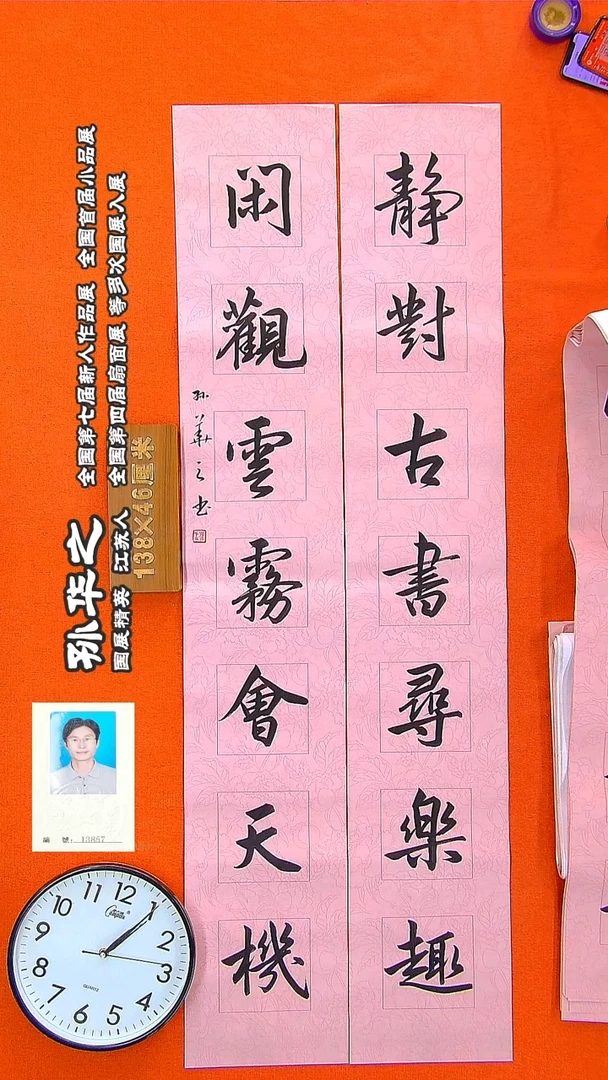 靜對古書尋樂趣
閑觀雲霧會天機
孙華之书
孙华之
国展精英 江苏人
全国第七届新人作品展 全国首届小品展
全国第四届扇面展 等多次国展入展
138×46厘米
編 號: 13857
12
1
2
3
4
5
6
7
8
9
10
11
QUARTZ